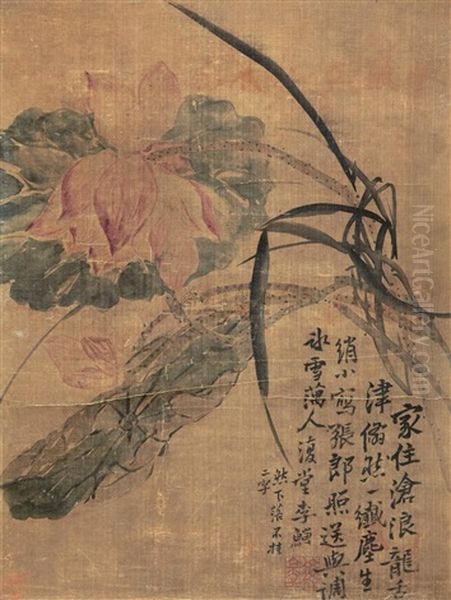 家住滄浪龍舌
津翛然一纖塵生
綃小寫張郎照送與調
冰雪藕人復堂李鱓
然下落不挂
二字
NiceArtGallery.com